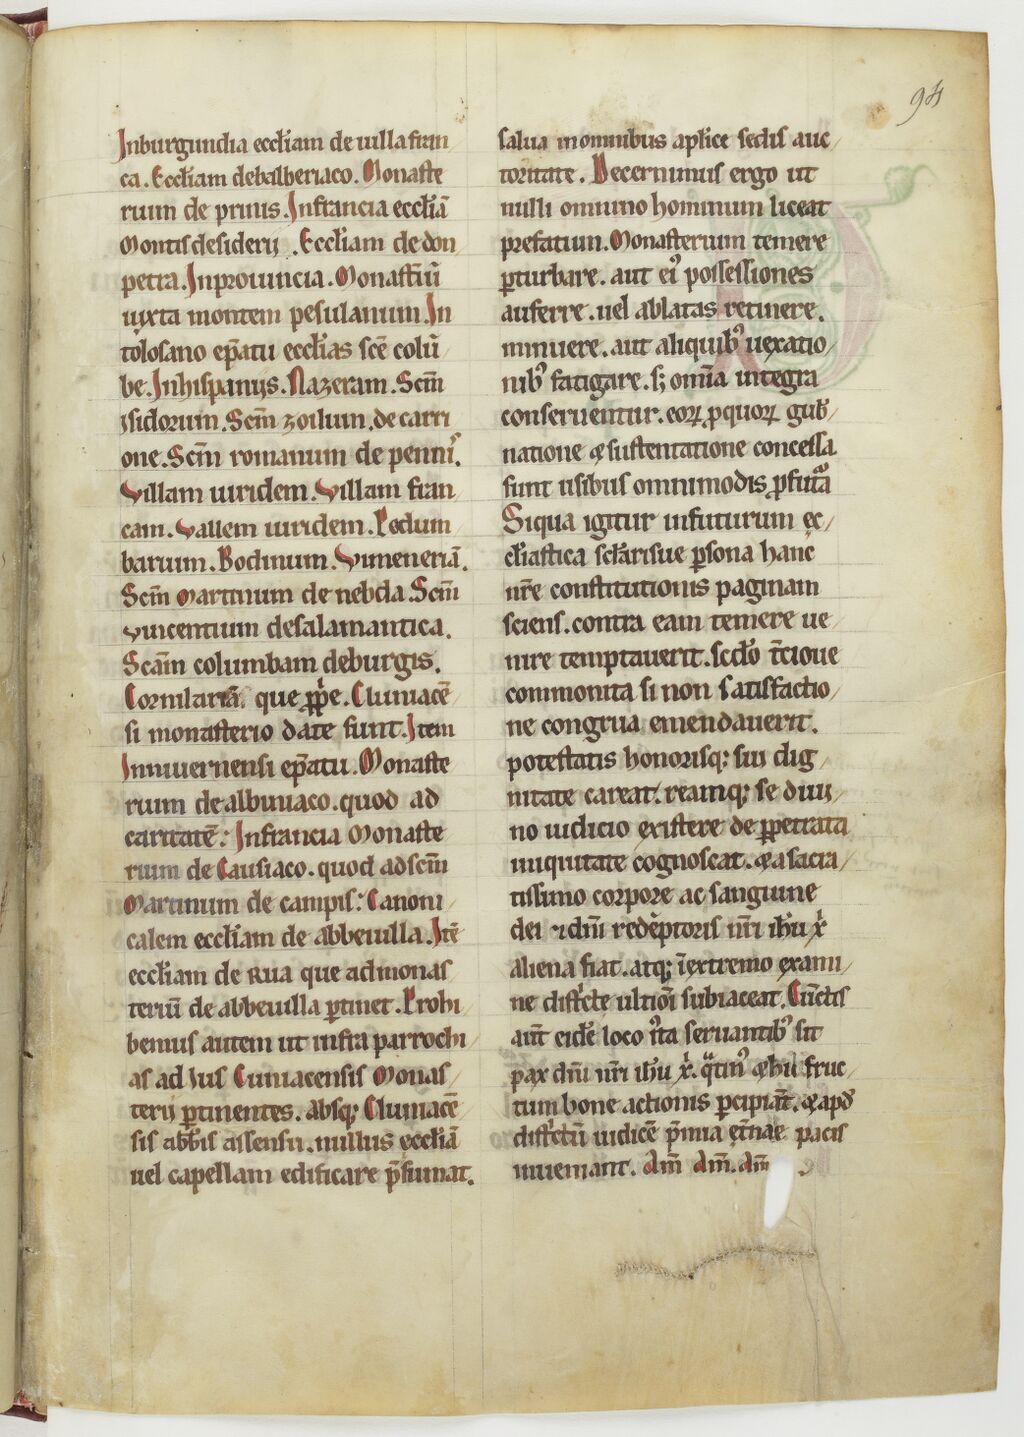 94
Inburgundia eccliam de uilla fran
ca. Eccliam debalberiaco. Monaste
rium de prinis. Infrancia eccliā
Montisdesiderij. Eccliam dedon
petra. Inprouincia. Monastiū
iuxta montem pesulanum. In
tolosano ep̄atu ecclias scē colū
be. Inhispaniis. Nazeram. Scm̄
ysidorum. Scm̄ zoilum. de carri
one. Scm̄ romanum de penni.
Villam uiridem. Villam fran
cam. Vallem uiridem. Podum
barum. Bodinum. Vimeneriā.
Scm̄ Martinum de nebda. Scm̄
vincentium desalamantica.
Scam̄ columbam deburgis.
Cornilariā. que ꝓp̄e. Cluniacē
si monasterio date sunt. Item
Inniuernensi ep̄atu. Monaste
rium dealbuniaco. quod ad
caritatē: Infrancia Monaste
rium de Causiaco. quod adscm̄
Martinum de campis: Canoni
calem eccliam de abbeuilla. Itē
eccliam de Rua que admonas
teriū de abbeuilla ꝑtinet. Prohi
bemus autem ut infra parrochi
as ad ius Cuniacensis Monas
terij ꝑtinentes. absq; Cluniacē
sis abbīs assensu. nullus eccliā
uel capellam edificare p̄sumat.
salua inomnibus aplīce sedis auc
toritate. Decernimus ergo ut
nulli omnino hominum liceat
prefatum. Monasterium temere
ꝑturbare. aut eiꝰ possessiones
auferre. uel ablatas retinere.
minuere. aut aliquibꝰ uexatio
nibꝰ fatigare. s; omīa integra
conseruentur. eoꝝ ꝓquoꝝ gub̄
natione ⁊ sustentatione concessa
sunt usibus omnimodis ꝓfutᵃ
Siqua igitur infuturum ec
cliastica sclarisue ꝑsona hanc
nr̄e constitutionis paginam
sciens. contra eam temere ue
nire temptauerit. scdo t̄cioue
commonita si non satisfactio
ne congrua emendauerit.
potestatis honorisq; sui dig
nitate careat. reamq; se diui
no iudicio existere de ꝑpetrata
iniquitate cognoscat. ⁊ asacra
tissimo corpore ac sanguine
dei ⁊ dn̄i redēptoris nr̄i ih̄u xp̄i
aliena fiat. atq; īextremo exami
ne districte ultiōi subiaceat. Cūctis
aut̄ eidē loco iꝰta seruantibꝰ sit
pax dn̄i nr̄i ih̄u xp̄i. qᵃtinꝰ ⁊ hic fruc
tum bone actionis ꝑcipiāt. ⁊ apd̄
districtū iudicē p̄mia et̄nae pacis
inueniant. am̄ am̄. am̄